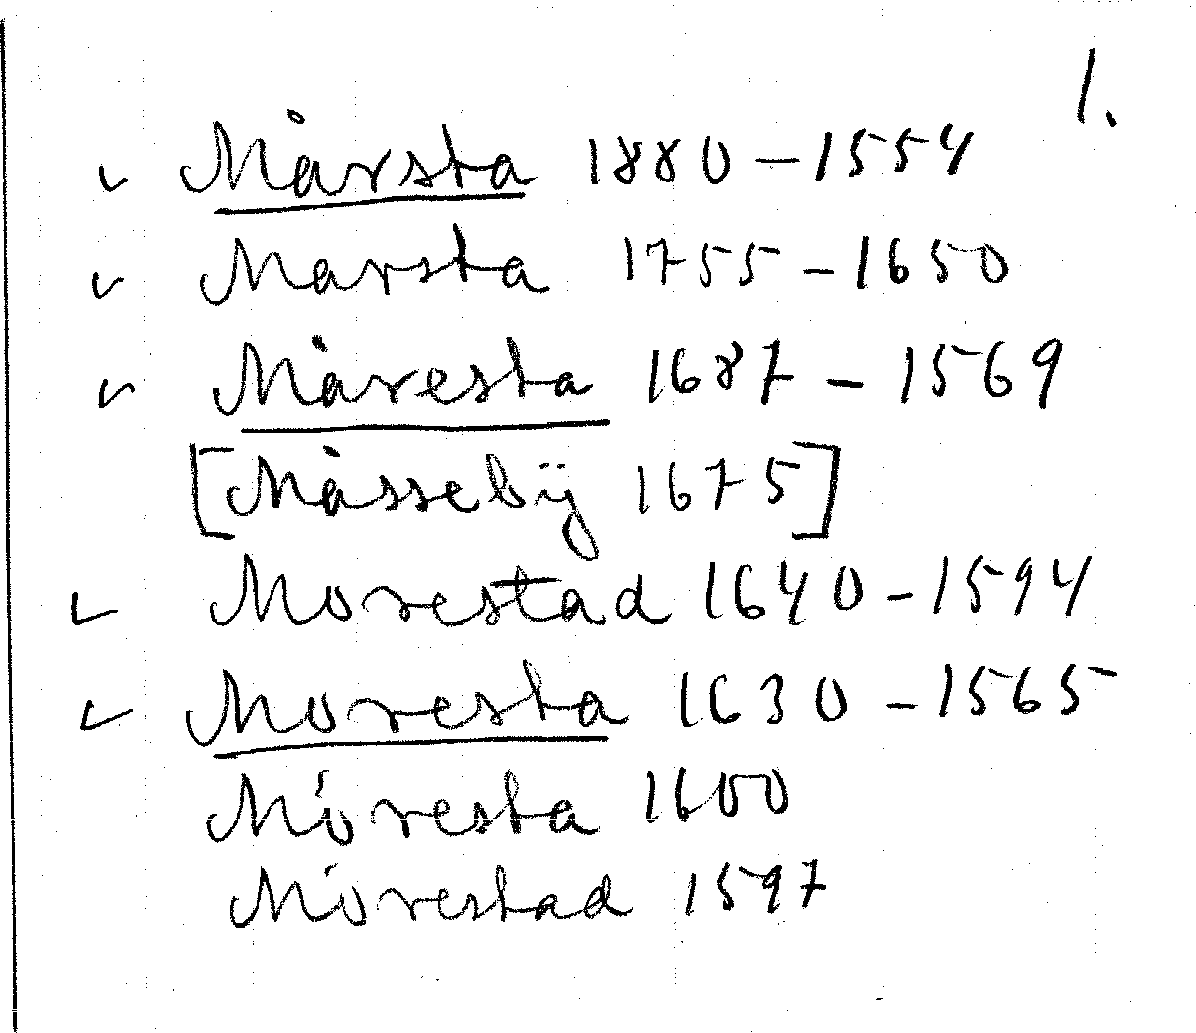 1.
✓ Mårsta 1880 – 1554
✓ Marsta 1755 – 1650
✓ Måresta 1687 – 1569
[Måssebÿ 1675]
✓ Morestad 1640 – 1594
✓ Moresta 1630 – 1565
Móresta 1600
Mórestad 1597